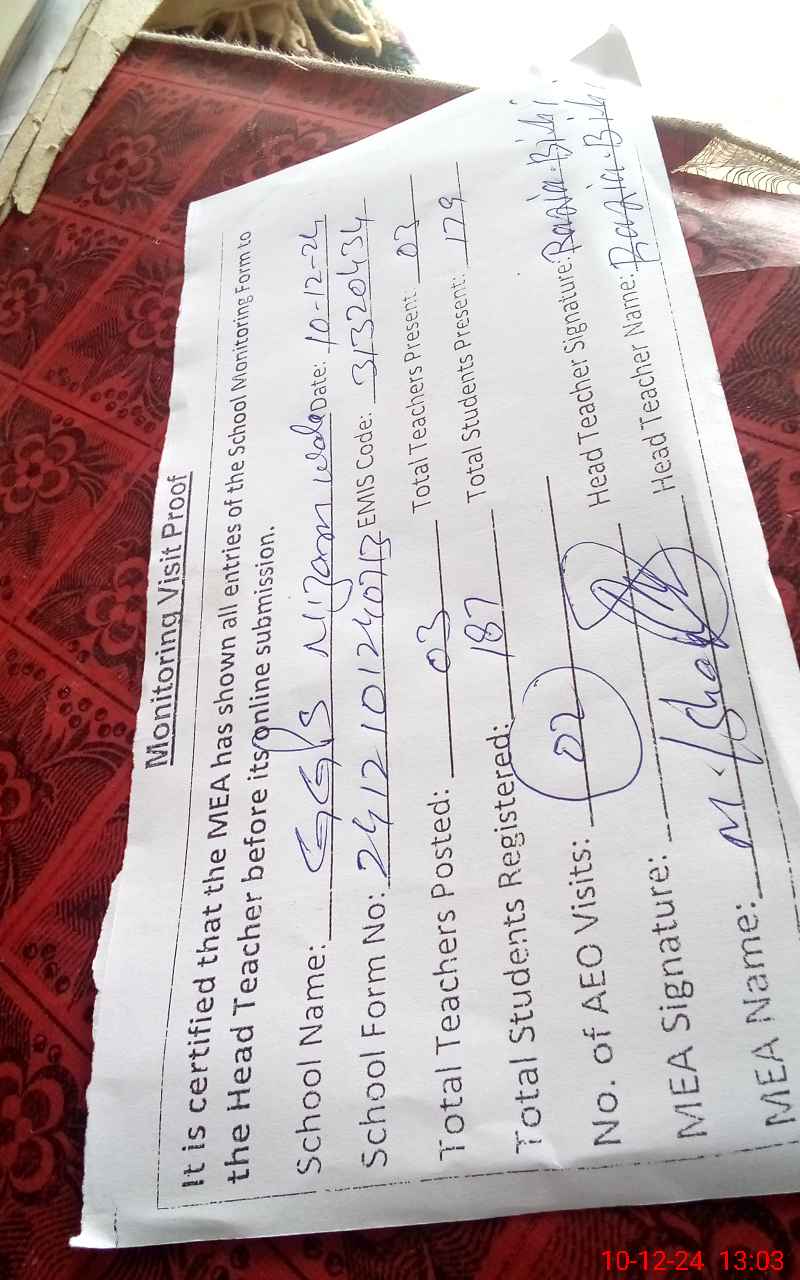 Monitoring Visit Proof
It is certified that the MEA has shown all entries of the School Monitoring Form to
the Head Teacher before its online submission.
School Name: GGPS Nizam wala Date: 10-12-24
School Form No: 2412101240713 EMIS Code: 31320434
Total Teachers Posted: 03 Total Teachers Present: 03
Total Students Registered: 187 Total Students Present: 179
No. of AEO Visits: 02
MEA Signature: Head Teacher Signature: Razia Bibi
MEA Name: M. Head Teacher Name: Razia Bibi
10-12-24 13:03